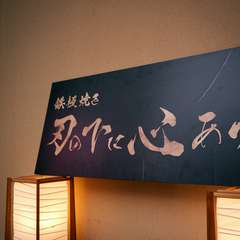 鉄板焼き
刃の下に心あり